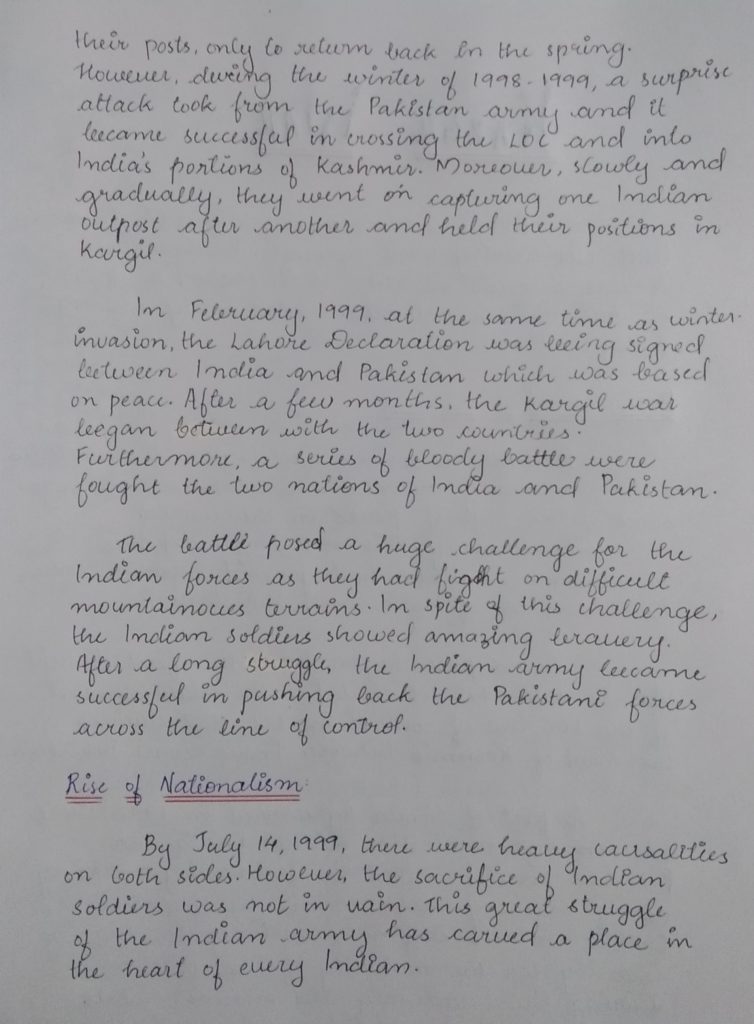 their posts, only to return back in the spring.
However, during the winter of 1998-1999, a surprise
attack took from the Pakistan army and it
became successful in crossing the LOC and into
India's portions of Kashmir. Moreover, slowly and
gradually, they went on capturing one Indian
outpost after another and held their positions in
Kargil.
In February, 1999, at the same time as winter-
invasion, the Lahore Declaration was being signed
between India and Pakistan which was based
on peace. After a few months, the Kargil war
began between with the two countries.
Furthermore, a series of bloody battle were
fought the two nations of India and Pakistan.
The battle posed a huge challenge for the
Indian forces as they had fight on difficult
mountainous terrains. In spite of this challenge,
the Indian soldiers showed amazing bravery.
After a long struggle, the Indian army became
successful in pushing back the Pakistani forces
across the line of control.
Rise of Nationalism:
By July 14, 1999, there were heavy causalities
on both sides. However, the sacrifice of Indian
soldiers was not in vain. This great struggle
of the Indian army has carved a place in
the heart of every Indian.